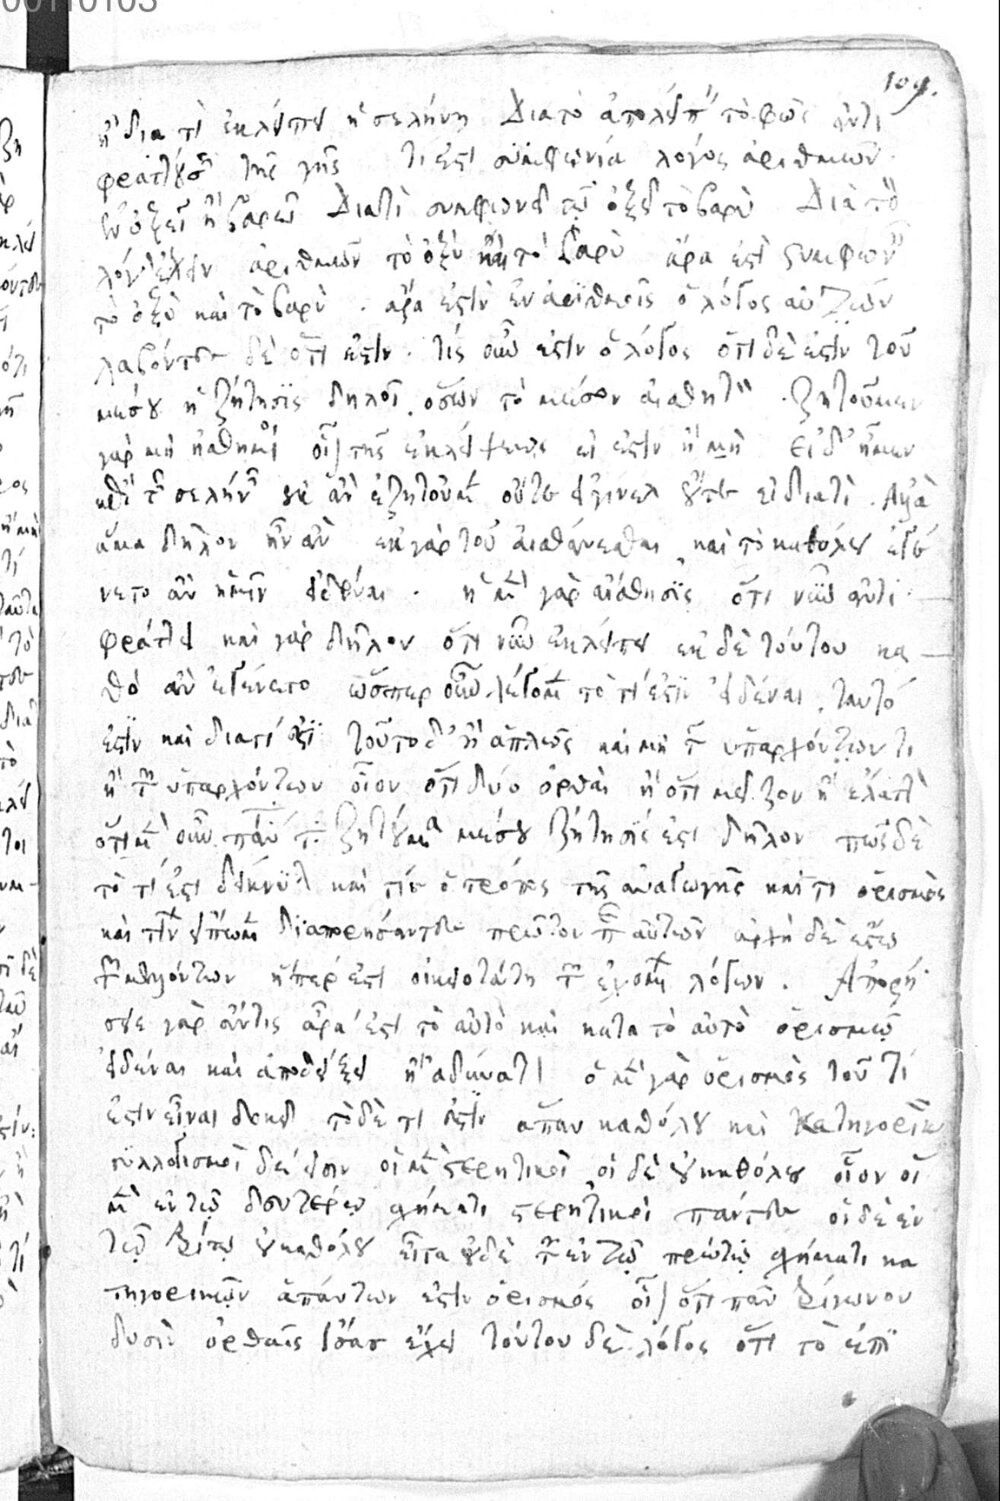 109.
ἢ διὰ τί ἐκλείπει ἡ σελήνη Διὰ τὸ ἀπολείπειν τὸ φῶς ἀντι
φραττούσης τῆς γῆς τί ἐστι συμφωνία λόγος ἀριθμῶν
ἐν ὀξεῖ ἢ βαρεῖ Διατί συμφωνεῖ τῷ ὀξεῖ τὸ βαρύ Διὰ τὸ
λόγον ἔχειν ἀριθμῶν τὸ ὀξὺ καὶ τὸ βαρύ ἆρα ἐστὶ συμφωνεῖν
τὸ ὀξὺ καὶ τὸ βαρύ . ἆρα ἐστὶν ἐν ἀριθμοῖς ὁ λόγος αὐτῶν
λαβόντες δὲ ὅτι ἐστίν . τίς οὖν ἐστιν ὁ λόγος ὅτι δέ ἐστιν τοῦ
μέσου ἡ ζήτησις δηλοῖ ὅσων τὸ μέσον αἰσθητόν . ζητοῦμεν
γὰρ μὴ ᾐσθημένοι οἷον τῆς ἐκλείψεως εἰ ἔστιν ἢ μὴ εἰ δ' ἦμεν
ἐπὶ τῆς σελήνης οὐκ ἂν ἐζητοῦμεν οὔτε εἰ γίνεται οὔτε διατί . Ἀλλὰ
ἅμα δῆλον ἦν ἂν ἐκ γὰρ τοῦ αἰσθάνεσθαι καὶ τὸ καθόλου ἐγέ
νετο ἂν ἡμῖν εἰδέναι . ἡ μὲν γὰρ αἴσθησις ὅτι νῦν ἀντι
φράττει καὶ γὰρ δῆλον ὅτι νῦν ἐκλείπει ἐκ δὲ τούτου κα
θό ἂν ἐγένετο ὥσπερ οὖν λέγομεν τὸ τί ἐστιν εἰδέναι ταυτό
ἐστιν καὶ διατί ἐστι τοῦτο δ' ἢ ἁπλῶς καὶ μὴ τῶν ὑπαρχόντων τι
ἢ τῶν ὑπαρχόντων οἷον ὅτι δύο ὀρθαὶ ἢ ὅτι μεῖζον ἢ ἔλαττον
ὅτι μὲν οὖν πάντα τὰ ζητούμενα μέσου ζήτησίς ἐστι δῆλον πῶς δὲ
τὸ τί ἐστι δείκνυται καὶ τίς ὁ τρόπος τῆς ἀναγωγῆς καὶ τί ὁρισμὸς
καὶ τίνων εἴπωμεν διαπορήσαντες πρῶτον περὶ αὐτῶν ἀρχὴ δὲ ἔστω
τῶν μελλόντων ἥπερ ἐστὶ οἰκειοτάτη τῶν ἐχομένων λόγων . Ἀπορή
σειε γὰρ ἄν τις ἆρα ἐστὶ τὸ αὐτὸ καὶ κατὰ τὸ αὐτὸ ὁρισμῷ
εἰδέναι καὶ ἀποδείξει ἢ ἀδύνατον ὁ μὲν γὰρ ὁρισμὸς τοῦ τί
ἐστιν εἶναι δοκεῖ τὸ δὲ τί ἐστιν ἅπαν καθόλου καὶ κατηγορικὸν
συλλογισμοὶ δέ εἰσιν οἱ μὲν στερητικοὶ οἱ δὲ οὐ καθόλου οἷον οἱ
μὲν ἐν τῷ δευτέρῳ σχήματι στερητικοὶ πάντες οἱ δὲ ἐν
τῷ τρίτῳ οὐ καθόλου εἶτα οὐδὲ τῶν ἐν τῷ πρώτῳ σχήματι κα
τηγορικῶν ἁπάντων ἐστὶν ὁρισμός οἷον ὅτι πᾶν τρίγωνον
δυσὶν ὀρθαῖς ἴσας ἔχει τούτου δὲ λόγος ὅτι τὸ ἐπί